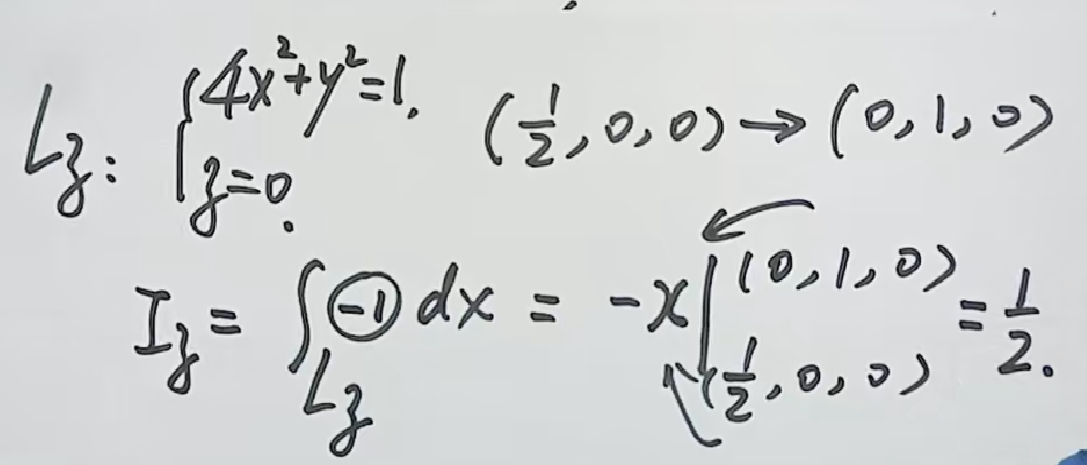 L_z: { 4x²+y²=1, z=0. (1/2, 0, 0) → (0, 1, 0)
I_z = ∫_{L_z} (-1) dx = -x |_{(1/2, 0, 0)}^{(0, 1, 0)} = 1/2.